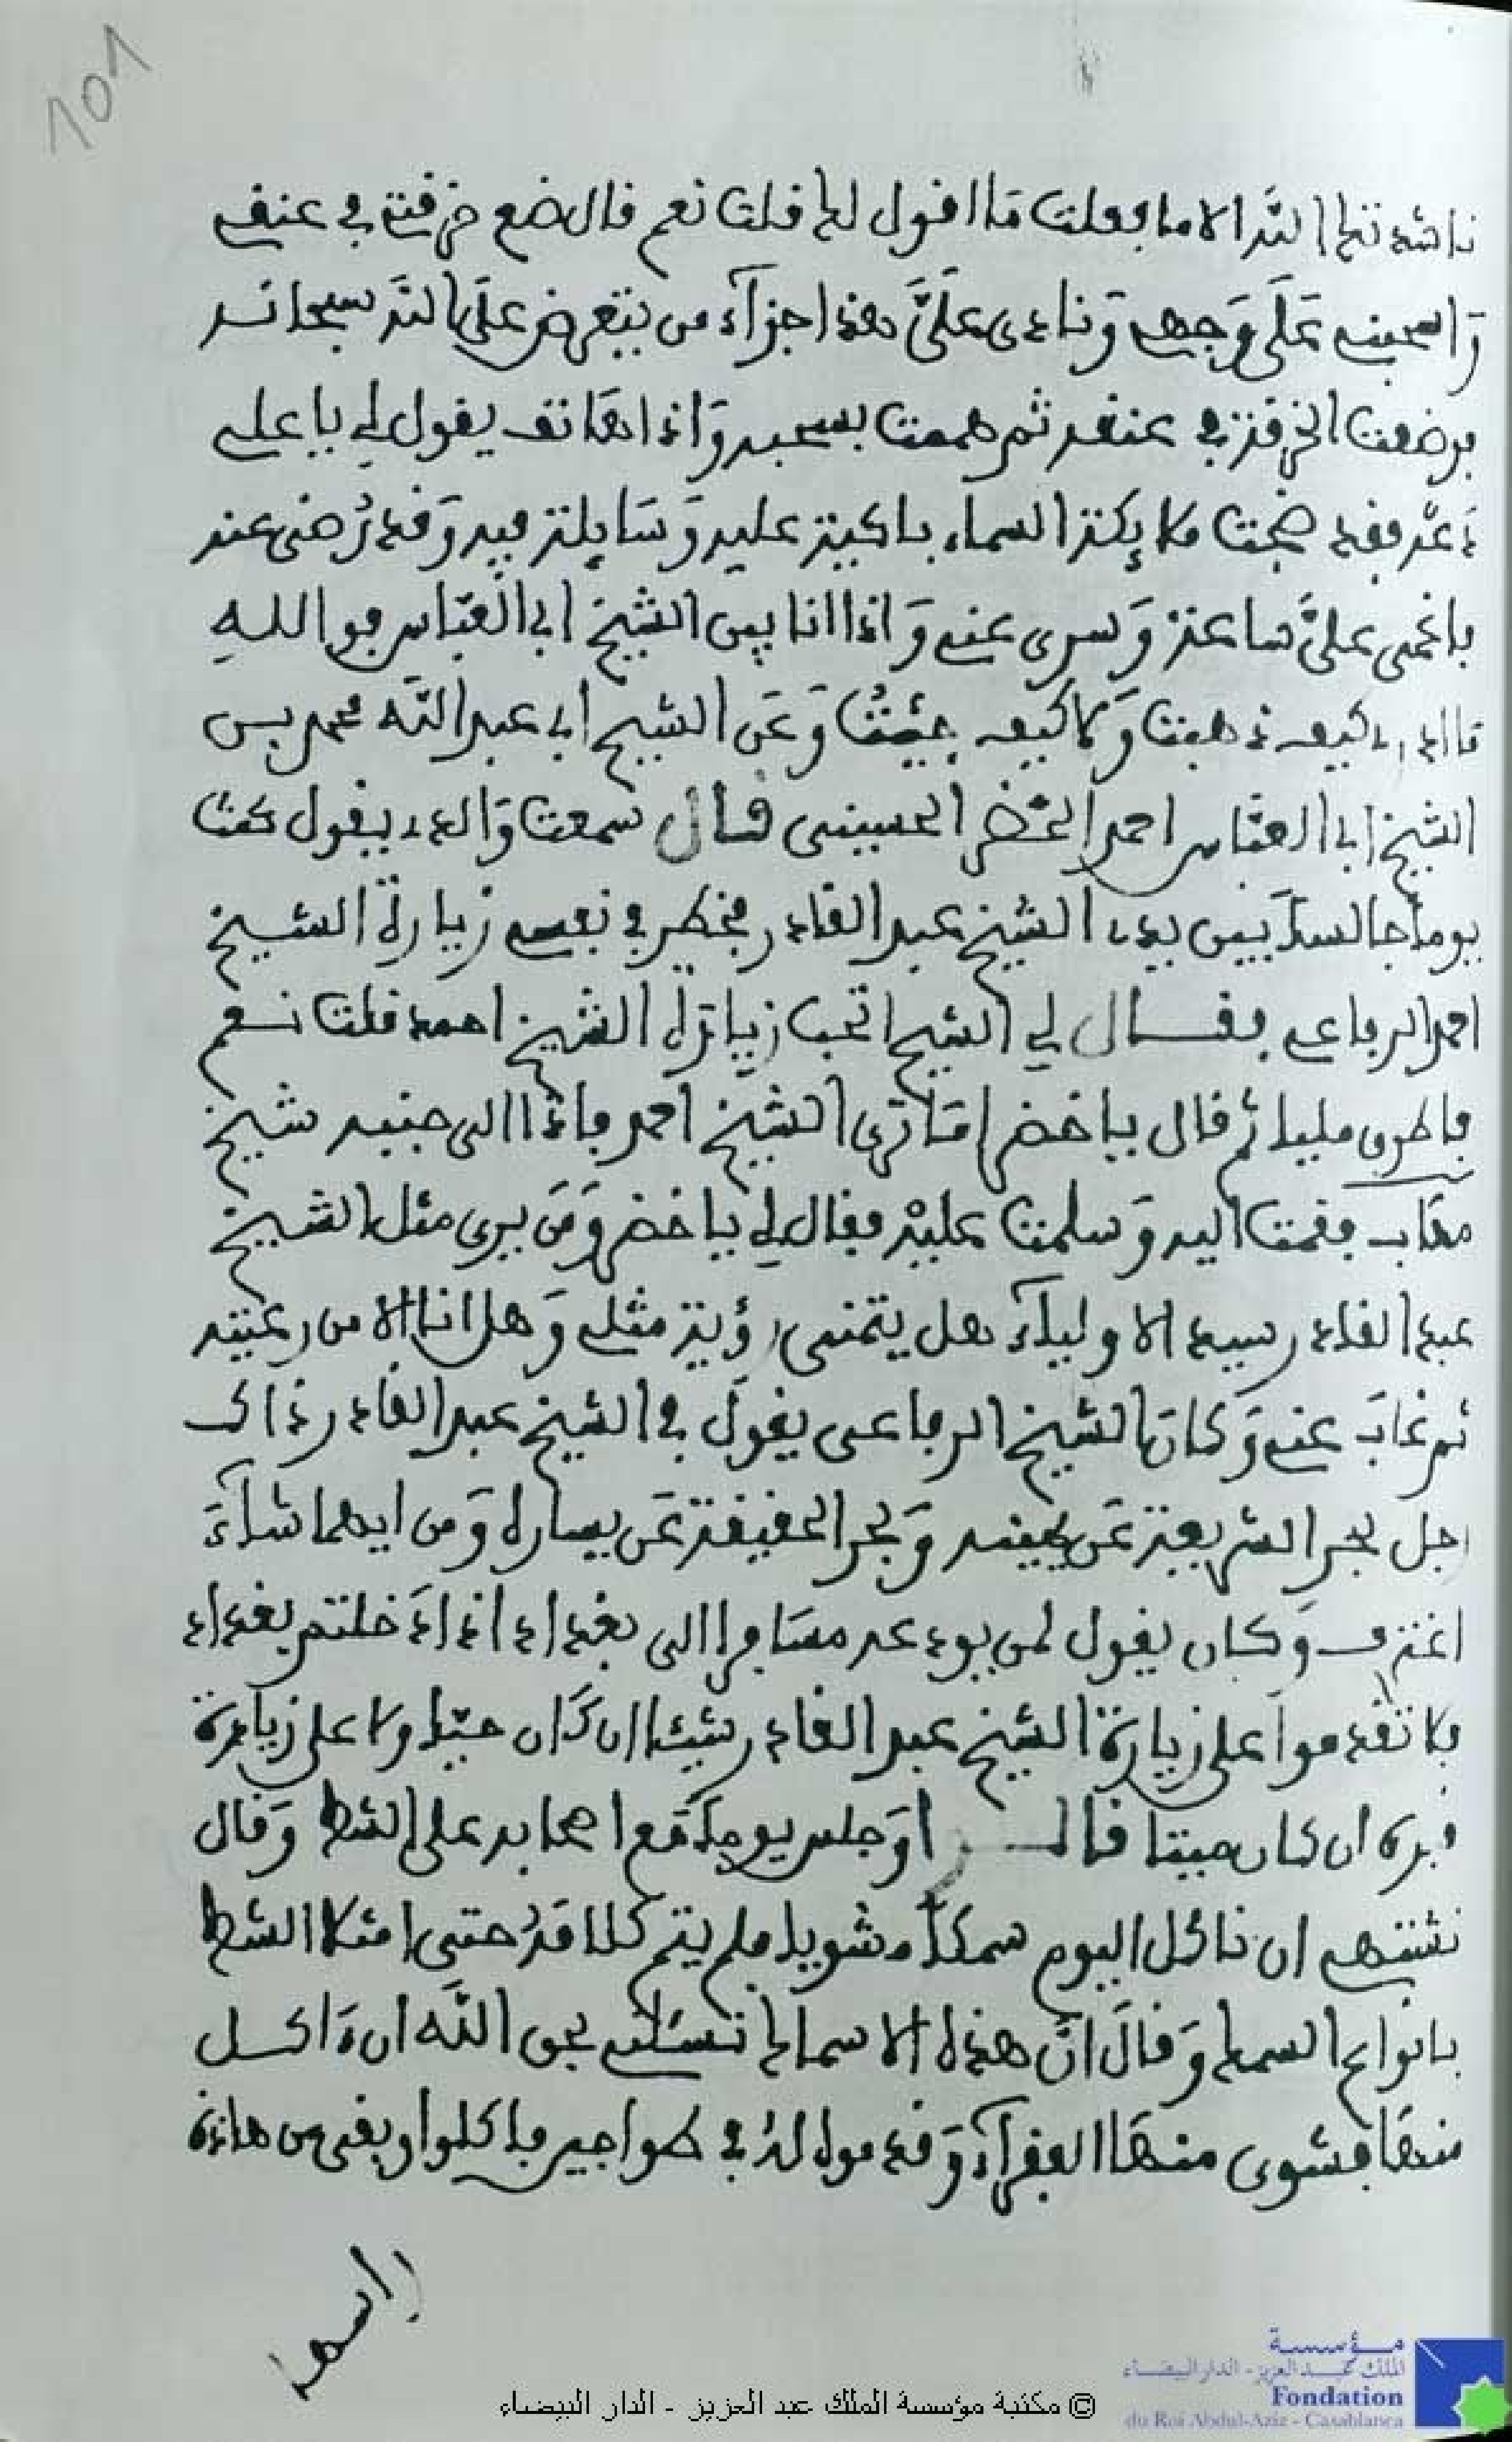 101
ناشدتك الله الا ما فعلت ما اقول لك قلت نعم قال ضع خرقتي في عنقي
واسحبني على وجهي وناد على هذا جزاء من يتعرض على الله سبحانه
فوضعت الخرقة في عنقه ثم هممت بسحبه واذا هاتف يقول لي يا علي
دعه فقد ضجت ملايكة السماء باكية عليه وسايلة فيه وقد رضي عنه
فاغمي علي ساعة وسري عني واذا انا بين الشيخ ابي العباس فو الله
ما ادري كيف ذهبت ولا كيف جئت وعن الشيخ ابي عبد الله محمد بن
الشيخ ابي العباس احمد الخضر الحسيني قال سمعت والدي يقول كنت
يوما جالسا بين يدي الشيخ عبد القادر فخطر في نفسي زيارة الشيخ
احمد الرفاعي فقال لي الشيخ اتحب زيارة الشيخ احمد قلت نعم
فاطرق مليا ثم قال يا خضر اما ترى الشيخ احمد فاذا الى جنبه شيخ
مهاب فقمت اليه وسلمت عليه فقال لي يا خضر ومن يرى مثل الشيخ
عبد القادر سيد الاولياء هل يتمنى رؤية مثلي وهل انا الا من رعيته
ثم غاب عني وكان الشيخ الرفاعي يقول في الشيخ عبد القادر ذاك
رجل بحر الشريعة عن يمينه وبحر الحقيقة عن يساره ومن ايهما شاء
اغترف وكان يقول لمن يودعه مسافرا الى بغداد اذا دخلتم بغداد
فلا تقدموا على زيارة الشيخ عبد القادر شيئا ان كان حيا ولا على زيارة
قبره ان كان ميتا قال وجلس يوما مع اصحابه على الشط وقال
نشتهي ان ناكل اليوم سمكا مشويا فلم يتم كلامه حتى امتلا الشط
بانواع السمك وقال ان هذه الاسماك تسئلني بحق الله ان اكل
منها فشوى منها الفقراء وقدموا له في طواجير فاكلوا وبقي من هاذه
راسها
مؤسسة
الملك عبد العزيز - الدار البيضاء
Fondation
du Roi Abdul-Aziz - Casablanca
© مكتبة مؤسسة الملك عبد العزيز - الدار البيضاء